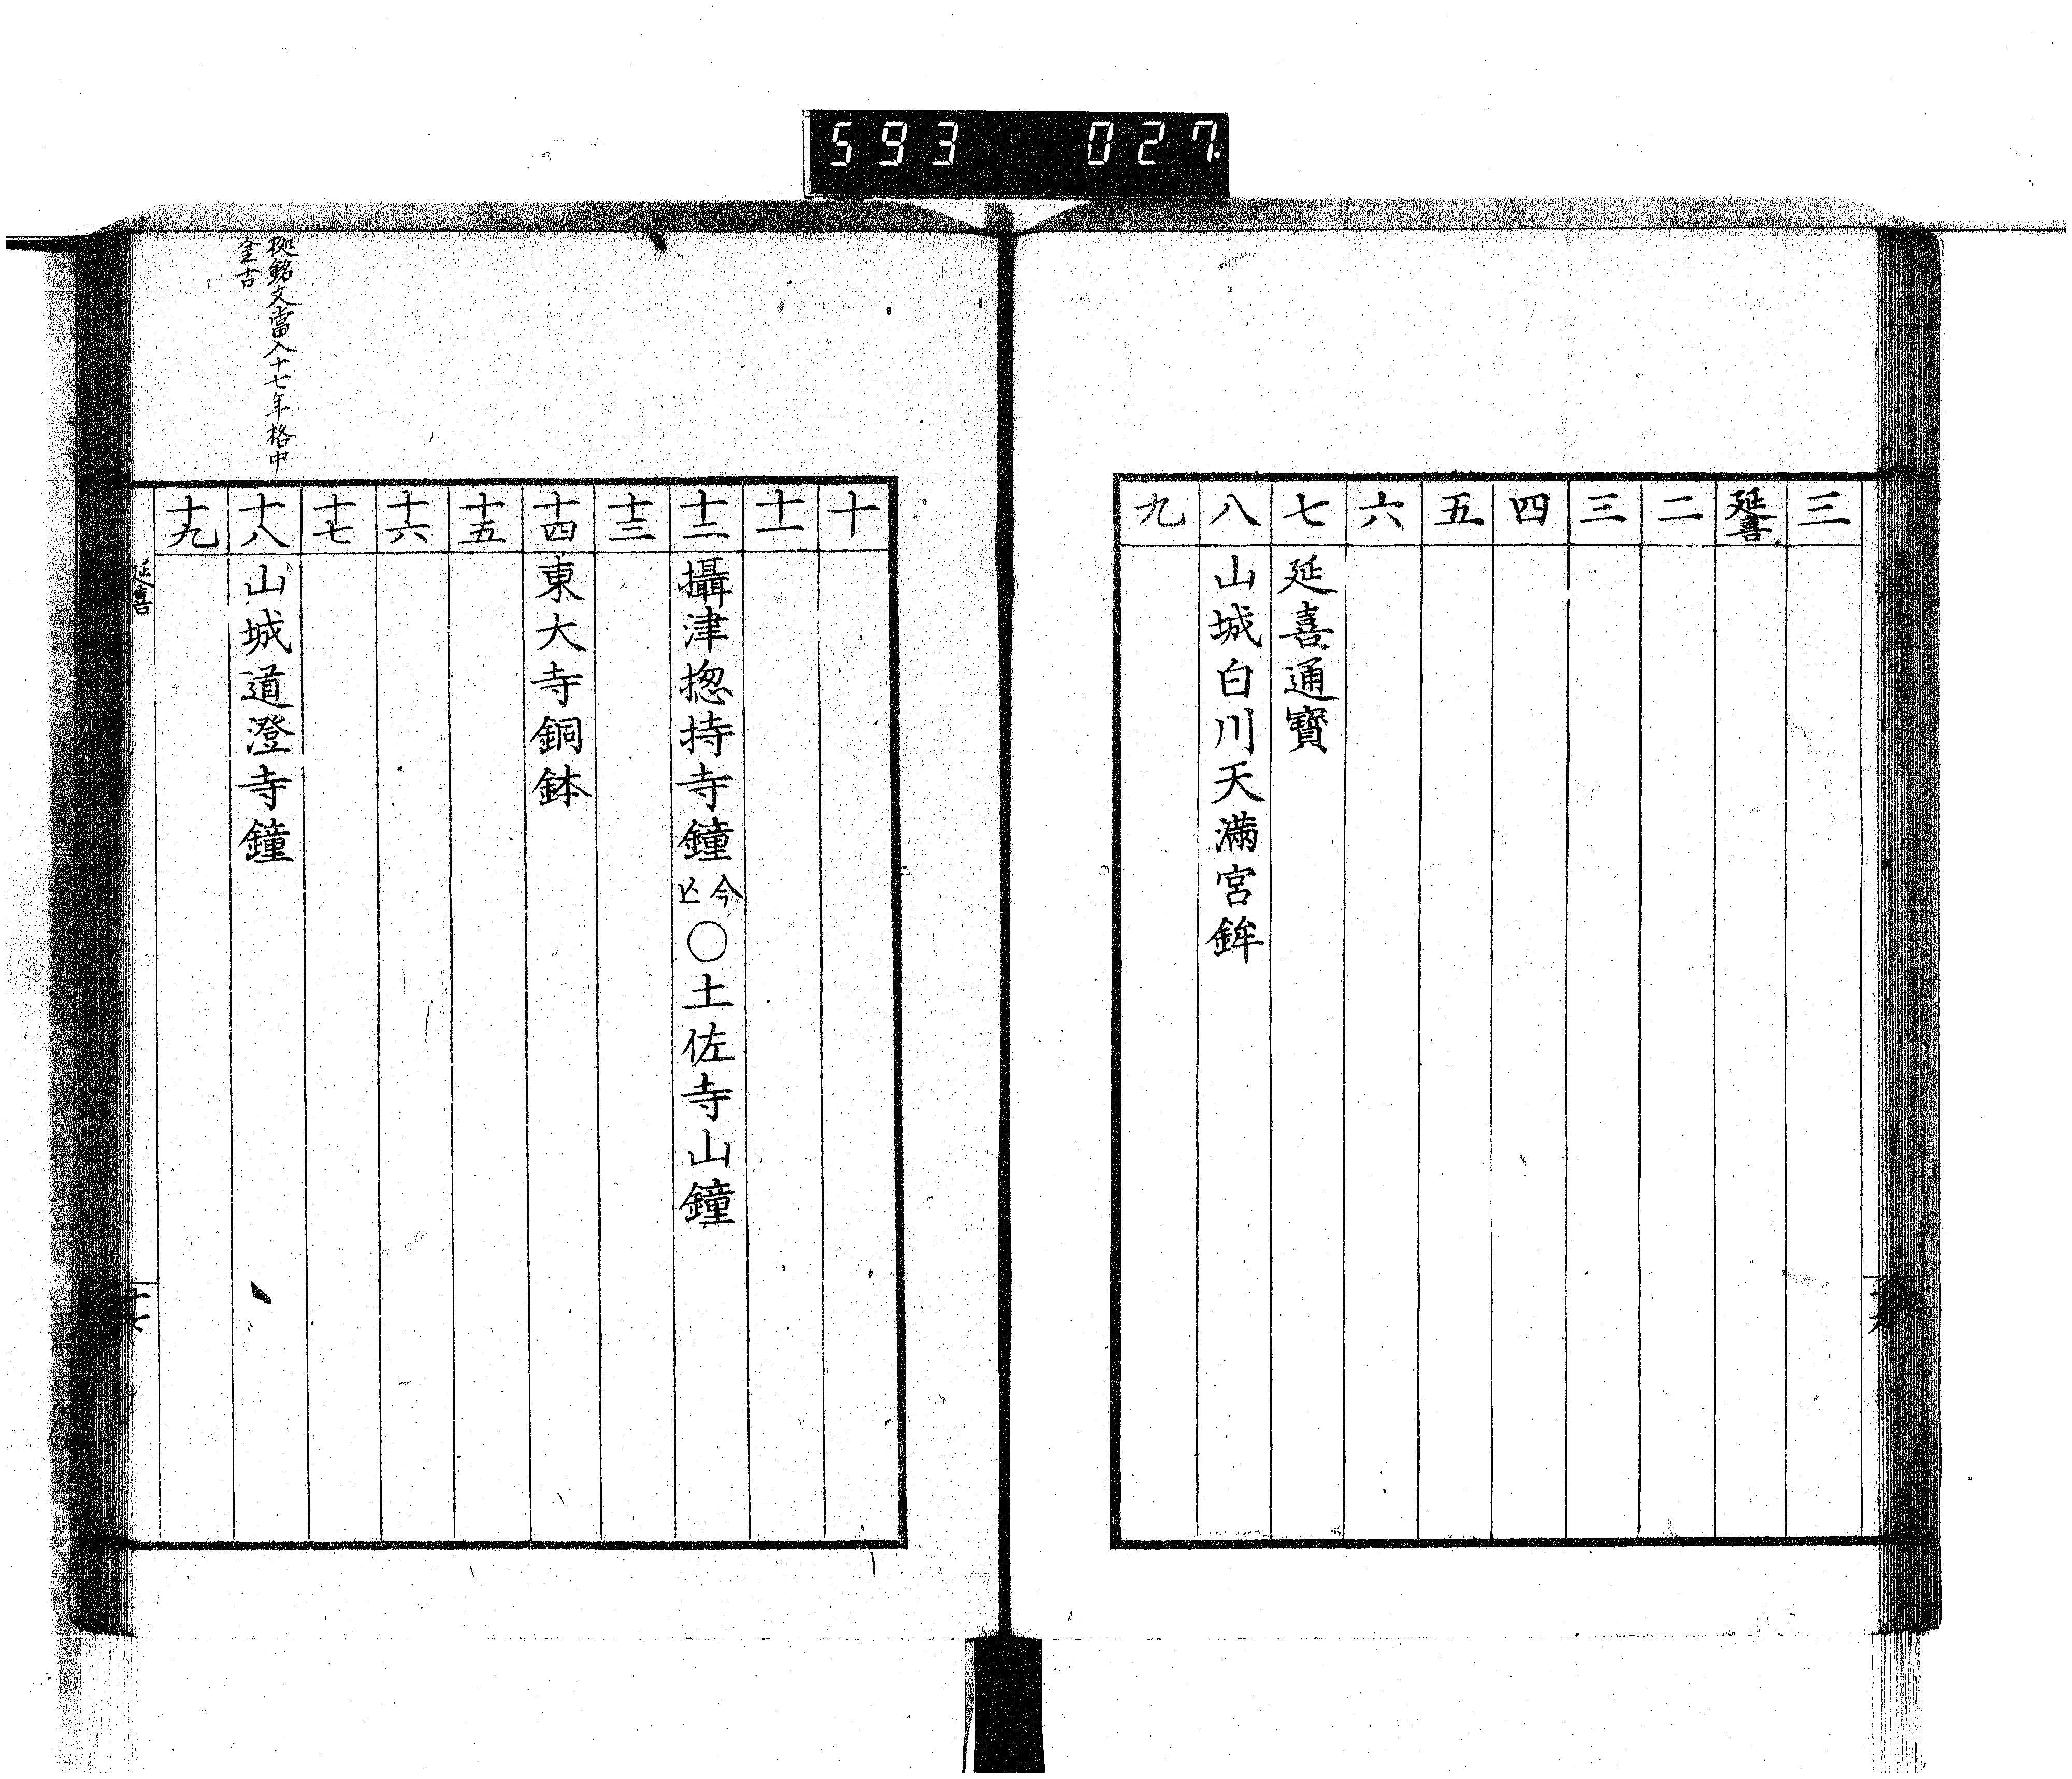 593 027.
三
延喜
二
三
四
五
六
七 延喜通寶
八 山城白川天滿宮鉾
九
十
十一
十二 攝津揔持寺鐘今亡〇土佐寺山鐘
十三
十四 東大寺銅鉢
十五
十六
十七
據銘文當入十七年格中
金古
十八 山城道澄寺鐘
十九
延喜
十七